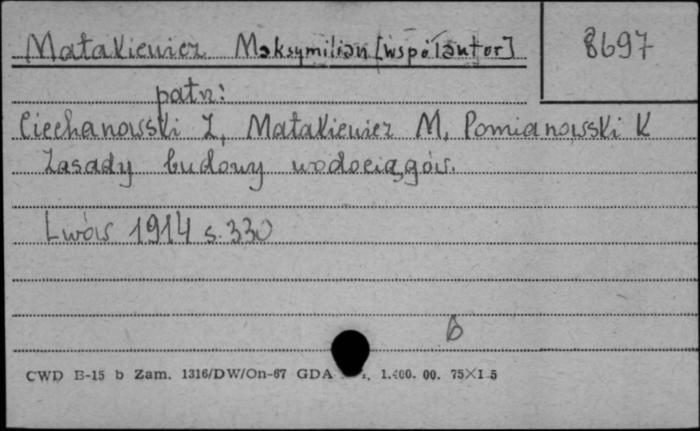 Matakiewicz Maksymilian [współautor]
8697
patrz:
Ciechanowski Z, Matakiewicz M, Pomianowski K
Zasady budowy wodociągów.
Lwów 1914 s. 330
b
CWD B-15 b Zam. 1316/DW/On-67 GDA 1.400. 00. 75×1 5